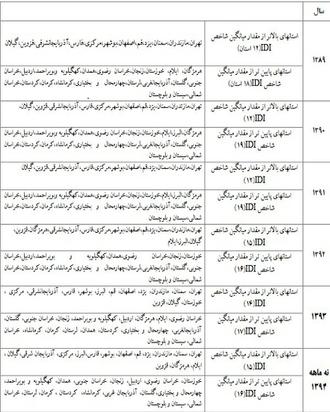 سال
استانهای بالاتر از مقدار میانگین شاخص
IDI (۱۲ استان)
تهران،مازندران،سمنان،یزد،قم،اصفهان،بوشهر،مرکزی،فارس، آذربایجانشرقی،قزوین،گیلان
۱۳۸۹
استانهای پایین تر از مقدار میانگین
شاخص IDI (۱۸ استان)
هرمزگان، ایلام، خوزستان،زنجان،خراسان رضوی،همدان،کهگیلویه وبویراحمد،اردبیل،خراسان
جنوبی،گلستان، آذربایجانغربی،لرستان،چهارمحال و بختیاری،کرمانشاه،کرمان،کردستان،خراسان
شمالی،سیستان و بلوچستان
استانهای بالاتر از مقدار میانگین شاخص
IDI (۱۲)
تهران،مازندران،سمنان،یزد،قم،اصفهان،بوشهر،مرکزی،فارس،آذربایجانشرقی،قزوین،گیلان
۱۳۹۰
استانهای پایین تر از مقدار میانگین
شاخص IDI (۱۹)
هرمزگان،البرز،ایلام،خوزستان،زنجان،خراسان رضوی،همدان،کهگیلویه و بویراحمد،اردبیل،خراسان
جنوبی،گلستان،آذربایجانغربی،لرستان،چهارمحال و بختیاری،کرمانشاه،کرمان،کردستان،خراسان
شمالی،سیستان و بلوچستان
استانهای بالاتر از مقدار میانگین شاخص
IDI (۱۲)
تهران،مازندران،سمنان،یزد،قم،اصفهان،بوشهر،مرکزی،فارس، آذربایجانشرقی،قزوین،گیلان
۱۳۹۱
استانهای پایین تر از مقدار میانگین
شاخص IDI (۱۹)
هرمزگان،البرز،ایلام،خوزستان،زنجان،خراسان رضوی،همدان،کهگیلویه و بویراحمد،اردبیل،خراسان
جنوبی،گلستان،آذربایجانغربی،لرستان،چهارمحال و بختیاری،کرمانشاه،کرمان،کردستان،خراسان
شمالی،سیستان و بلوچستان
استانهای بالاتر از مقدار میانگین شاخص
IDI (۱۵)
تهران،مازندران،سمنان،یزد،قم،اصفهان،بوشهر،مرکزی،فارس،آذربایجانشرقی،هرمزگان،قزوین،
گیلان،البرز،ایلام
۱۳۹۲
استانهای پایین تر از مقدار میانگین
شاخص IDI (۱۶)
خوزستان،زنجان،خراسان رضوی،همدان،کهگیلویه و بویراحمد،اردبیل،خراسان
جنوبی،گلستان،آذربایجانغربی،لرستان،چهارمحال و بختیاری،کرمانشاه،کرمان،کردستان،خراسان
شمالی،سیستان و بلوچستان
استانهای بالاتر از مقدار میانگین شاخص
IDI (۱۴)
تهران، سمنان، مازندران، یزد، اصفهان، قم، البرز، بوشهر، فارس، آذربایجانشرقی، مرکزی ،
خوزستان، گیلان، قزوین
۱۳۹۳
استانهای پایین تر از مقدار میانگین
شاخص IDI (۱۷)
خراسان رضوی، ایلام، هرمزگان، اردبیل، کهگیلویه و بویراحمد، زنجان، خراسان جنوبی، گلستان،
آذربایجانغربی، چهارمحال و بختیاری، کردستان، همدان، لرستان، کرمان، کرمانشاه، خراسان
شمالی، سیستان و بلوچستان
استانهای بالاتر از مقدار میانگین شاخص
IDI (۱۵)
تهران، سمنان، مازندران، یزد، قم، اصفهان، بوشهر، فارس،البرز، مرکزی، آذربایجان شرقی، گیلان ،
ایلام، هرمزگان، قزوین
نه ماهه
۱۳۹۴
استانهای پایین تر از مقدار میانگین
شاخص IDI (۱۶)
خوزستان، خراسان رضوی، اردبیل، زنجان، خراسان جنوبی، همدان، کهگیلویه و بویراحمد،
چهارمحال و بختیاری،گلستان، آذربایجان غربی، لرستان، کرمان، کرمانشاه، کردستان، خراسان
شمالی، سیستان و بلوچستان